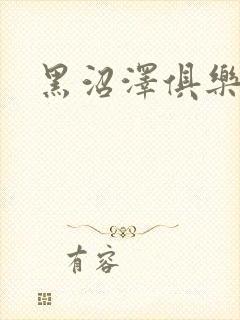 黑沼澤俱樂
有容